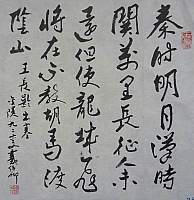 秦时明月漢時
關萬里長征人未
還但使龍城飛
將在不教胡馬渡
陰山 王昌齡出塞